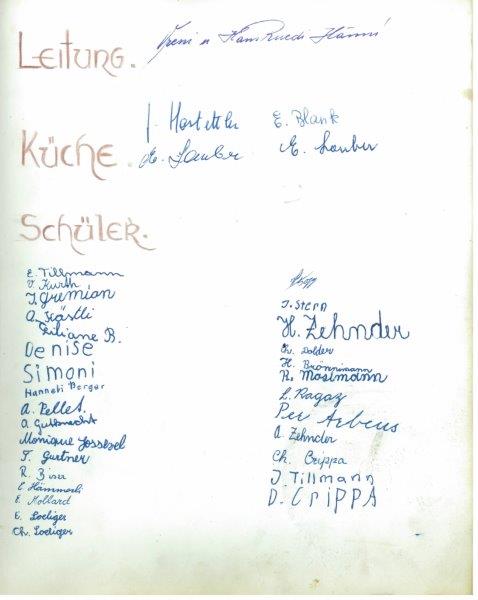 Leitung.
Vreni u Hansruedi Hänni
J. Hostettler
E. Blank
Küche.
E. Lauber
Schüler.
E. Tillmann
V. Kurth
J. Gremian
A. Kästli
Liliane B.
Denise
Simoni
Hanneli Berger
A. Pellet.
A. Gutknecht
Monique
T. Gurtner
R.
E. Hämmerli
E. Mollard
E. Loeliger
Ch. Loeliger
J. Stern
H. Zehnder
Ch. Dolder
H. Brönnimann
R. Mostmann
L. Ragaz
Per Arbeus
A. Zehnder
Ch. Crippa
J. Tillmann
D. CRiPPA